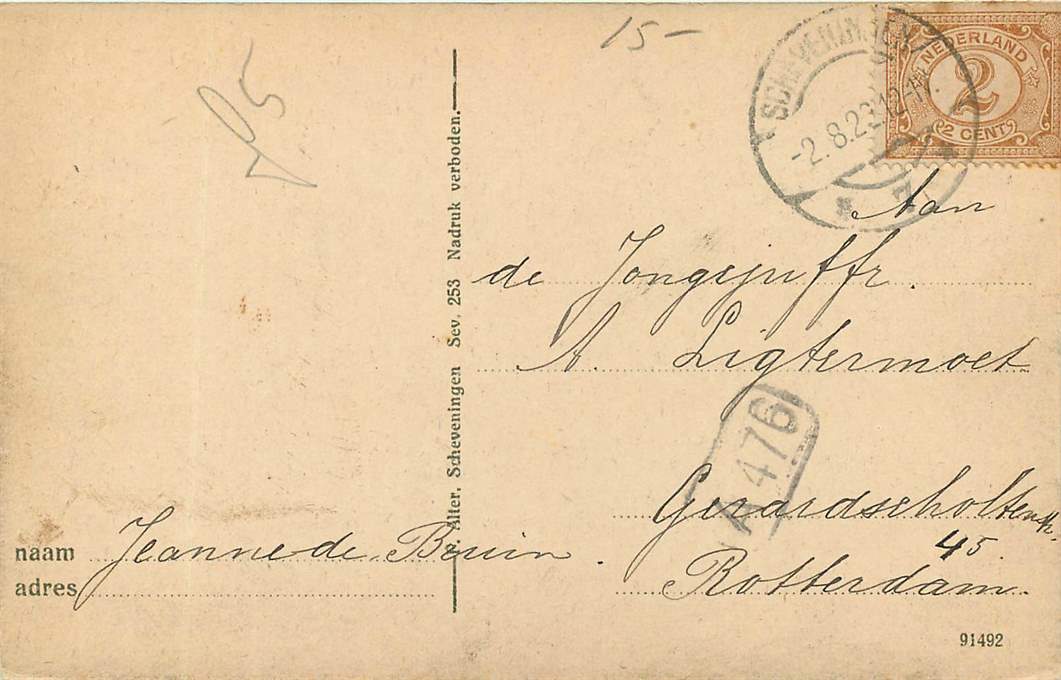 15-
NEDERLAND
2
2 CENT
SCHEVENINGEN
-2.8.23
Aan
de Jongejuffr.
A. Ligtermoet
A 476
Gerardscholtenstr.
45
Rotterdam.
P. Alter, Scheveningen Sev. 253 Nadruk verboden.
naam Jeanne de Bruin
adres
91492